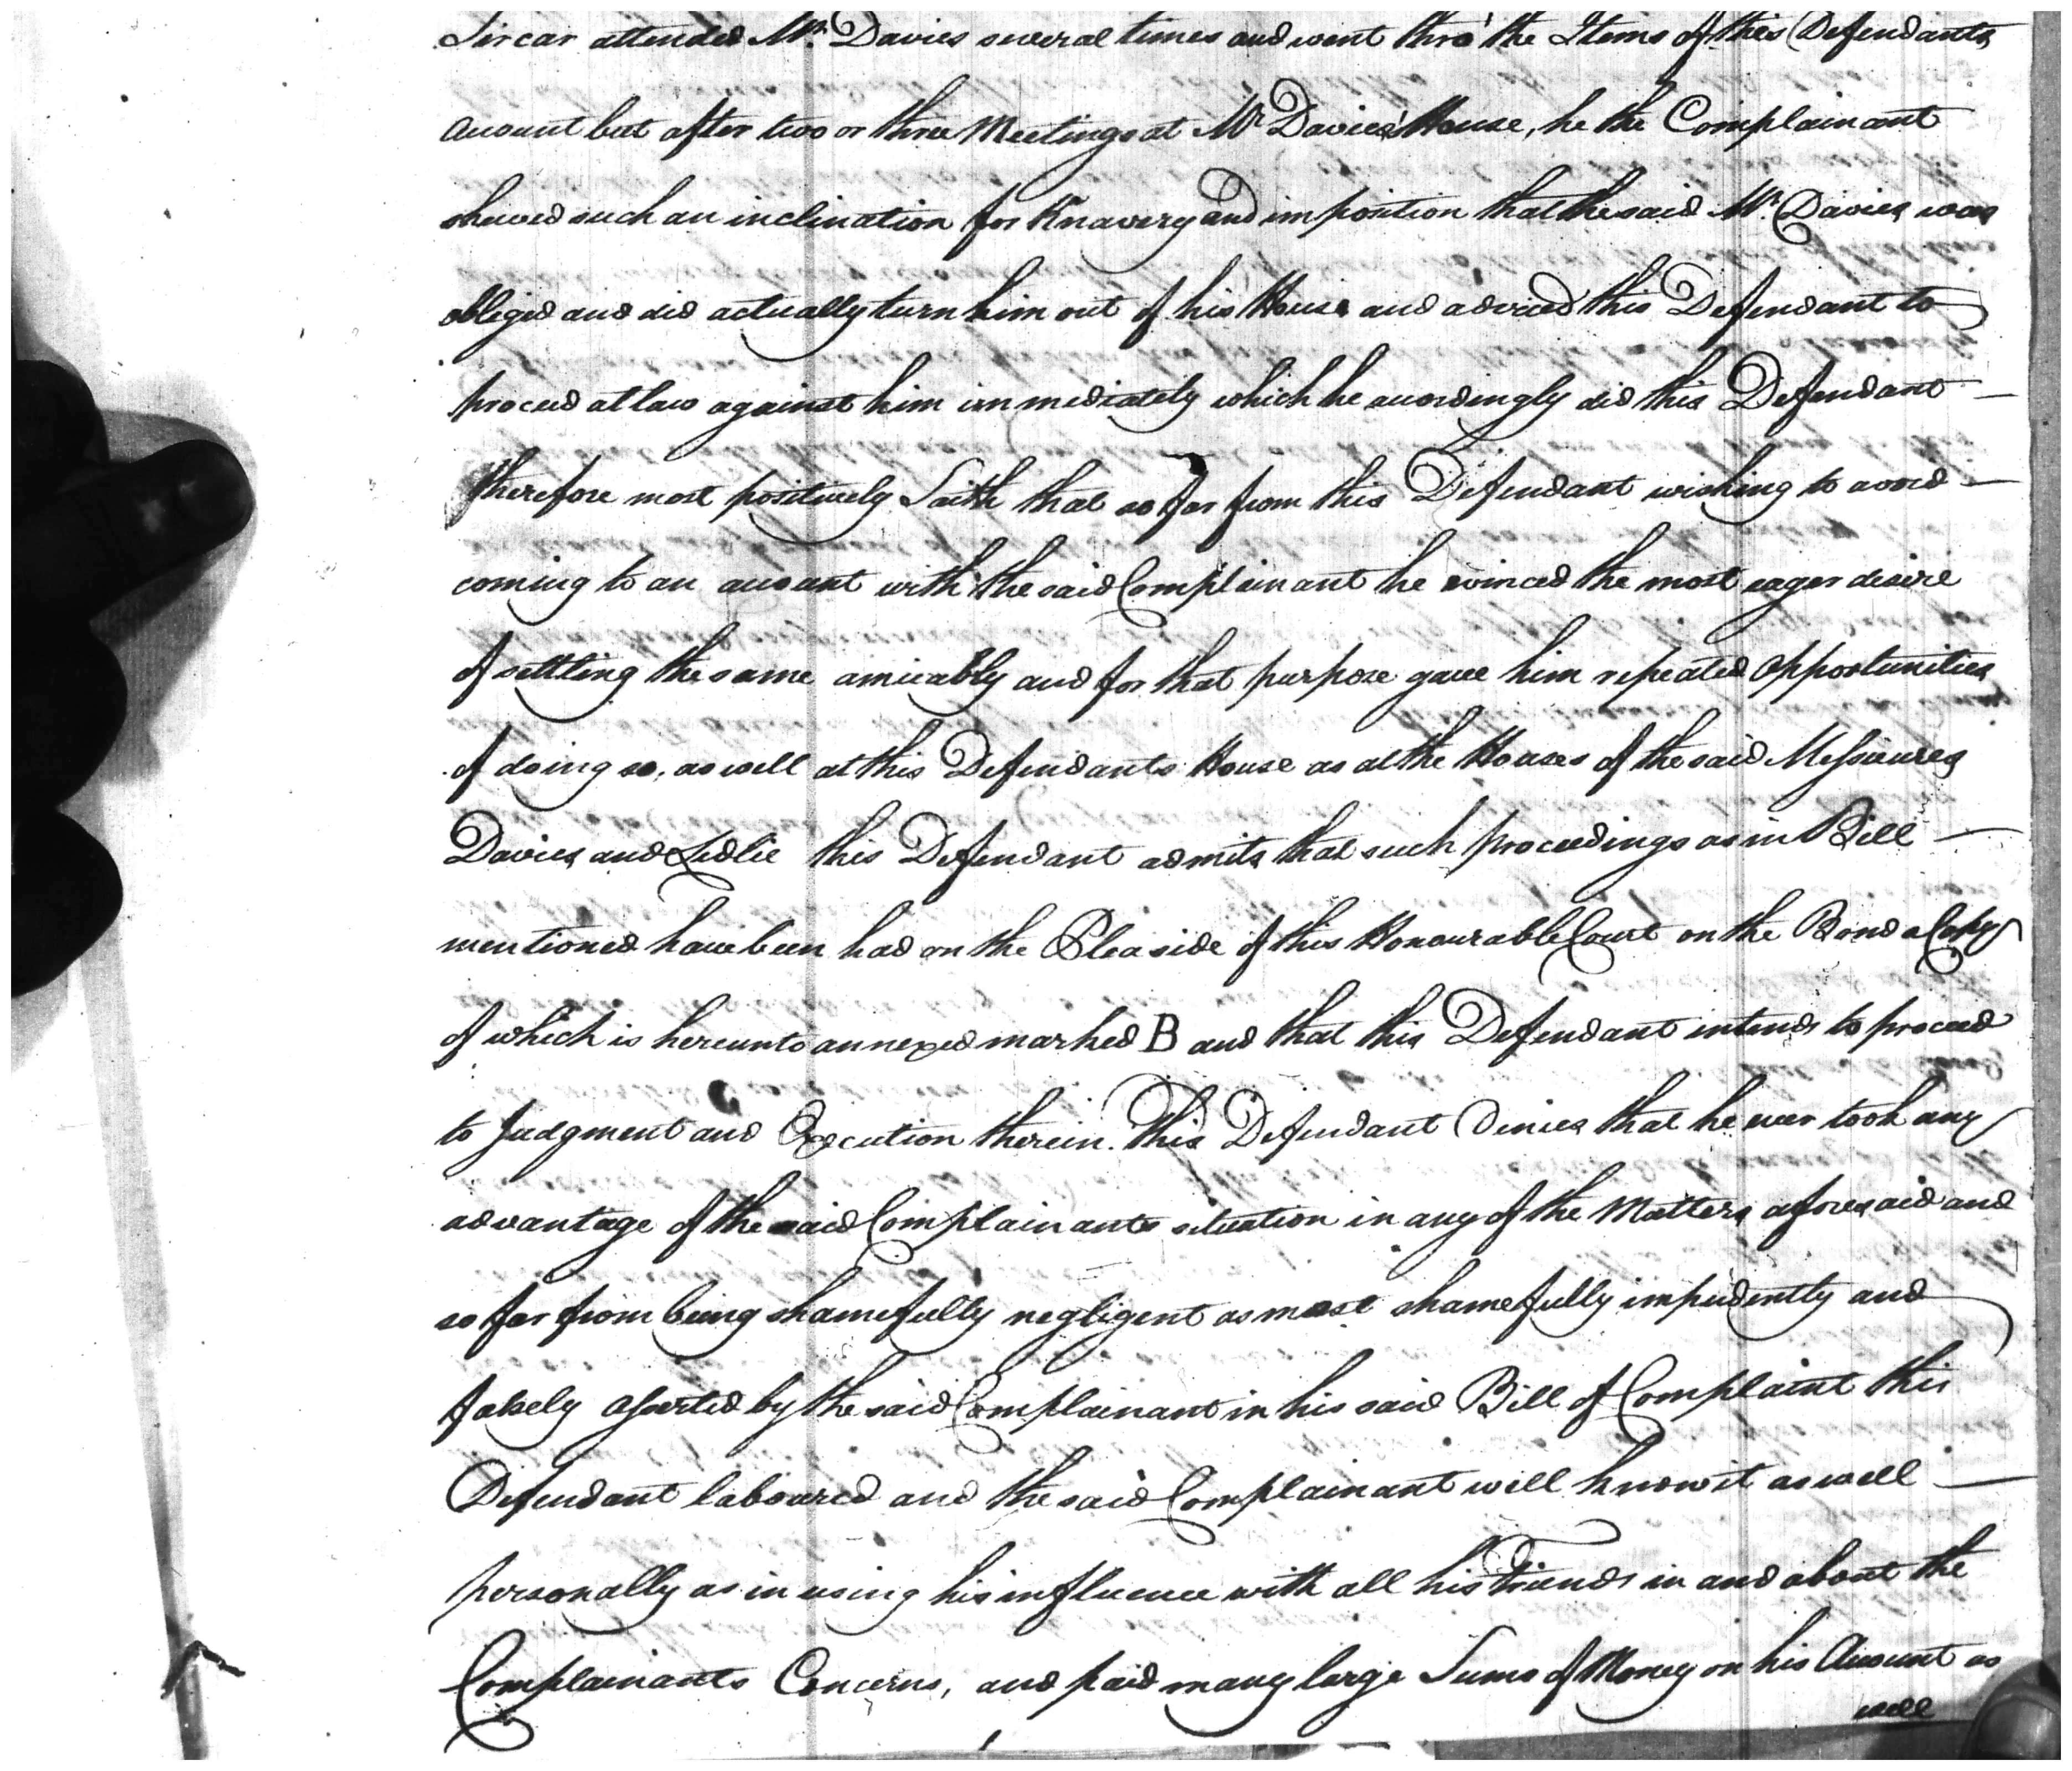 Sircar attended Mr. Davies several times and went thro' the Items of this Defendants
Account but after two or three Meetings at Mr Davies' House, he the Complainant
shewed such an inclination for Knavery and imposition that the said Mr. Davies was
obliged and did actually turn him out of his House and adviced this Defendant to
proceed at law against him immediately which he accordingly did this Defendant —
therefore most positively Saith that so far from this Defendant wishing to avoid —
coming to an account with the said Complainant he evinced the most eager desire
of settling the same amicably and for that purpose gave him repeated opportunities
of doing so, as well at this Defendants House as at the Houses of the said Messieures
Davies and Ledlie this Defendant admits that such proceedings as in Bill —
mentioned have been had on the Plea side of this Honourable Court on the Bond a Copy
of which is hereunto annexed marked B and that this Defendant intends to proceed
to Judgment and Execution therein. This Defendant Denies that he ever took any
advantage of the said Complainants situation in any of the Matters aforesaid and
so far from being shamefully negligent as most shamefully impudently and
falsely asserted by the said Complainant in his said Bill of Complaint this
Defendant laboured and the said Complainant well knows it as well —
personally as in using his influence with all his Friends in and about the
Complainants Concerns, and paid many large Sums of Money on his Account as
well